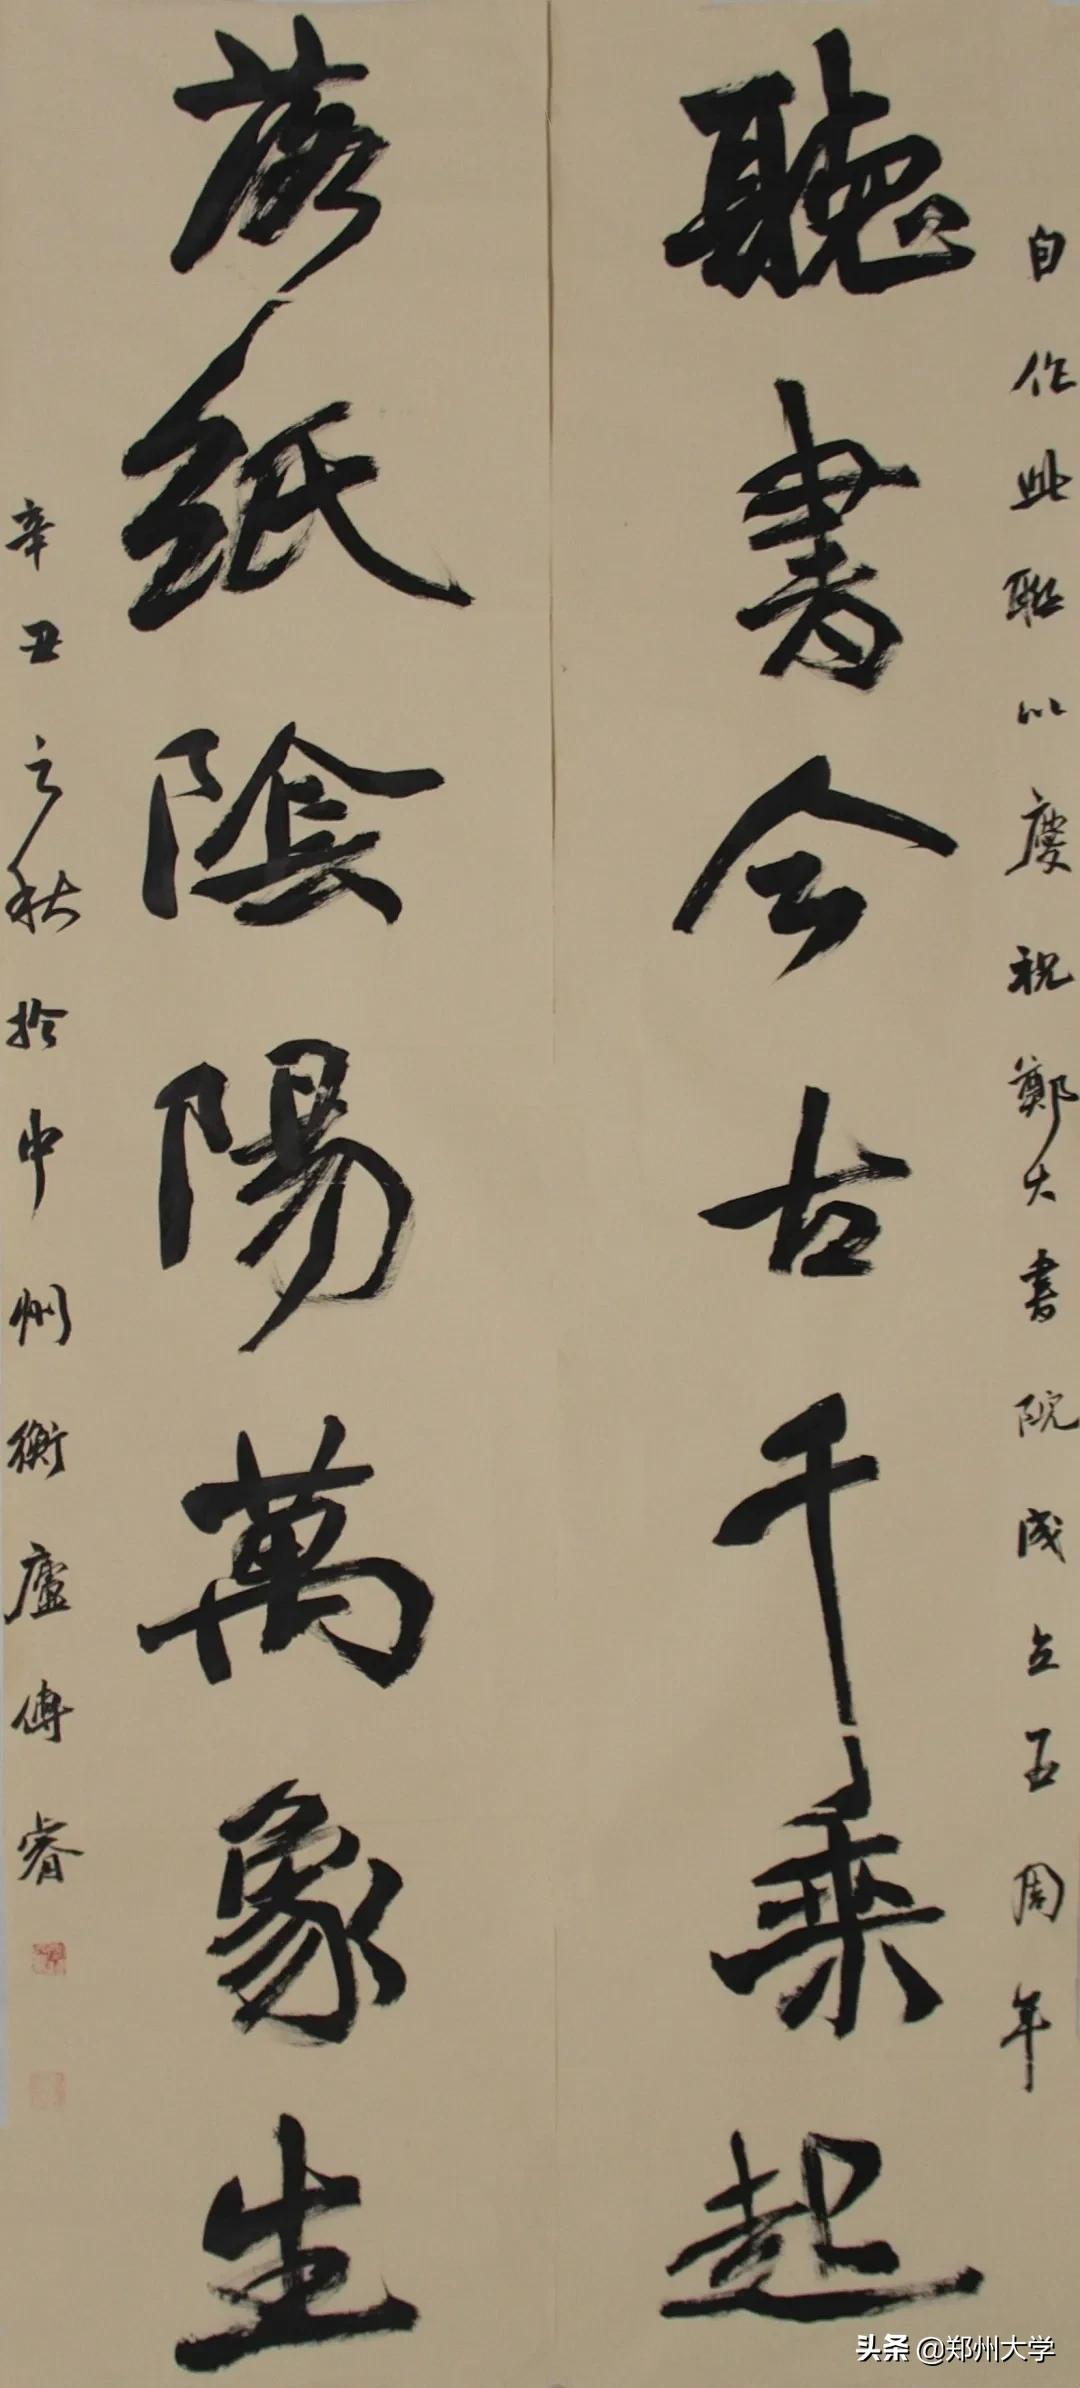 自作此聯以慶祝鄭大書院成立五周年
聽書今古千乘起
落紙陰陽萬象生
辛丑之秋於中州衡廬傅睿
头条 @郑州大学